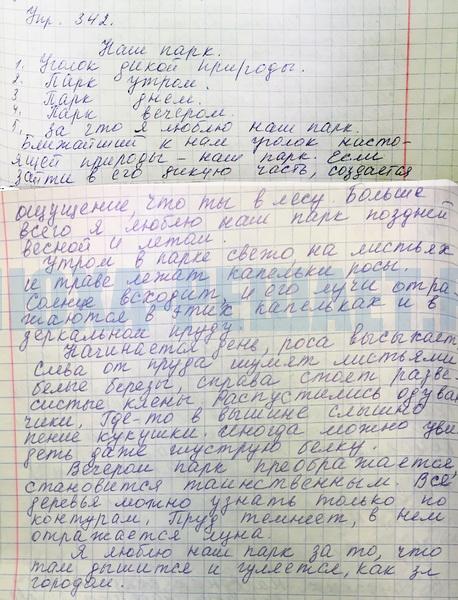 Упр. 342.
Наш парк.
1. Уголок дикой природы.
2. Парк утром.
3. Парк днём.
4. Парк вечером
5. За что я люблю наш парк.
Ближайший к нам уголок насто-
ящей природы – наш парк. Если
зайти в его дикую часть, создаётся
ощущение, что ты в лесу. Больше
всего я люблю наш парк поздней
весной и летом.
Утром в парке свежо, на листьях
и траве лежат капельки росы.
Солнце всходит, и его лучи отра-
жаются в этих капельках и в
зеркальном пруду.
Начинается день, роса высыхает
Слева от пруда шумят листьями
белые березы, справа стоят разве-
систые клены. Распустились одуван
чики. Где-то в вышине слышно
пение кукушки. Иногда можно уви
деть даже шуструю белку.
Вечером парк преображается,
становится таинственным. Все
деревья можно узнать только по
контурам. Пруд темнеет, в нем
отражается луна.
Я люблю наш парк за то, что
там дышится и гуляется, как за
городом.